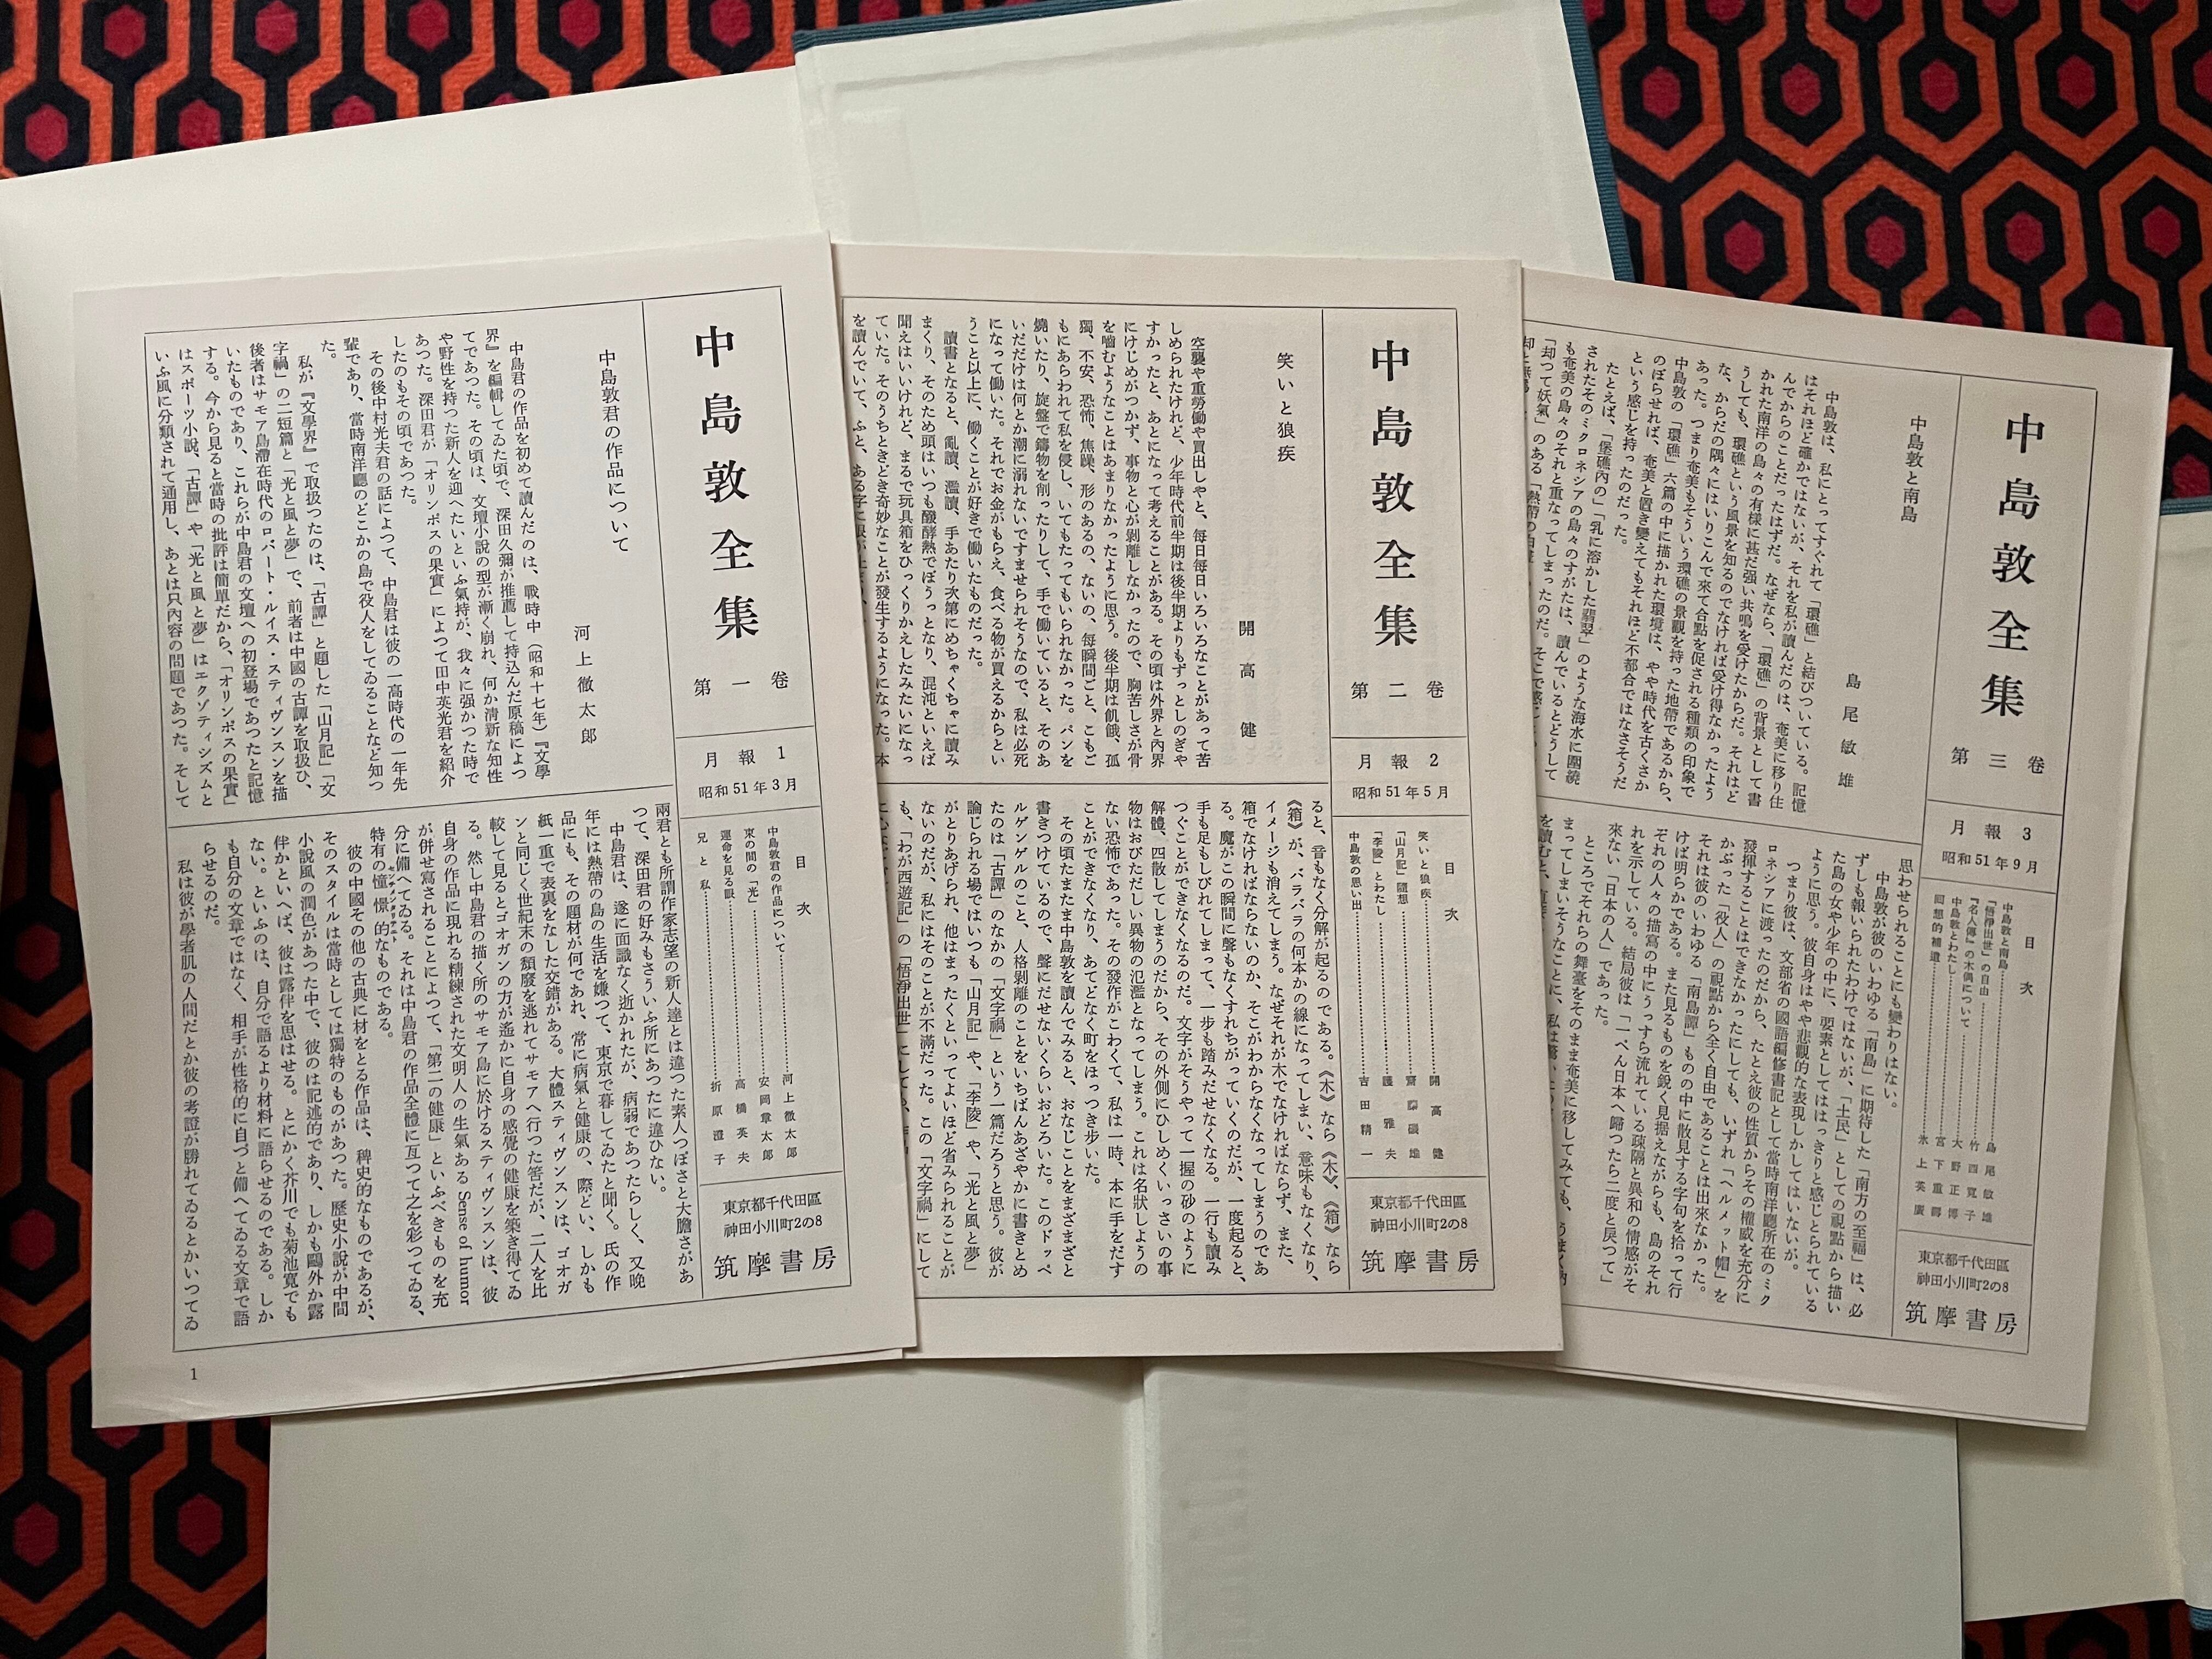 中島敦全集
第一卷
月報1
昭和51年3月
目次
中島敦君の作品について……河上徹太郎
束の間の「光」……安岡章太郎
運命を見る眼……高橋英夫
兄と私……折原澄子
東京都千代田區
神田小川町2の8
筑摩書房
中島敦君の作品について
河上徹太郎
中島君の作品を初めて讀んだのは、戰時中（昭和十七年）『文學
界』を編輯してゐた頃で、深田久彌が推薦して持込んだ原稿によつ
てであつた。その頃は、文壇小説の型が漸く崩れ、何か清新な知性
や野性を持つた新人を迎へたいといふ氣持が、我々に强かつた時で
あつた。深田君が、「オリンポスの果實」によつて田中英光君を紹介
したのもその頃であつた。
その後中村光夫君の話によつて、中島君は彼の一高時代の一年先
輩であり、當時南洋廳のどこかの島で役人をしてゐることなど知つ
た。
私が『文學界』で取扱つたのは、「古譚」と題した「山月記」「文
字禍」の二短篇と「光と風と夢」で、前者は中國の古譚を取扱ひ、
後者はサモア島滯在時代のロバート・ルイス・スティヴンスンを描
いたものであり、これらが中島君の文壇への初登場であつたと記憶
する。今から見ると當時の批評は簡單だから、「オリンポスの果實」
はスポーツ小説、「古譚」や「光と風と夢」はエクゾティシズムと
いふ風に分類されて通用し、あとは只內容の問題であつた。そして
兩君とも所謂作家志望の新人達とは違つた素人つぽさと大膽さがあ
つて、深田君の好みもさういふ所にあつたに違ひない。
中島君は、遂に面識なく逝かれたが、病弱であつたらしく、又晩
年には熱帶の島の生活を嫌つて、東京で暮してゐたと聞く。氏の作
品にも、その題材が何であれ、常に病氣と健康の、際どい、しかも
紙一重で表裏をなした交錯がある。大體スティヴンスンは、ゴオガ
ンと同じく世紀末の頽廢を逃れてサモアへ行つた筈だが、二人を比
較して見るとゴオガンの方が遙かに自身の感覺の健康を築き得てゐ
る。然し中島君の描く所のサモア島に於けるスティヴンスンは、彼
自身の作品に現れる精練された文明人の生氣ある Sense of humor
が併せ寫されることによつて、「第二の健康」といふべきものを充
分に備へてゐる。それは中島君の作品全體に亙つて之を彩つてゐる、
特有の憧憬的なものである。
彼の中國その他の古典に材をとる作品は、稗史的なものであるが、
そのスタイルは當時としては獨特のものがあつた。歷史小説が中間
小説風の潤色があつた中で、彼のは記述的であり、しかも鷗外か露
伴かといへば、彼は露伴を思はせる。とにかく芥川でも菊池寬でも
ない。といふのは、自分で語るより材料に語らせるのである。しか
も自分の文章ではなく、相手が性格的に自づと備へてゐる文章で語
らせるのだ。
私は彼が學者肌の人間だとか彼の考證が勝れてゐるとかいつてゐ
1
中島敦全集
第二卷
月報2
昭和51年5月
目次
笑いと狼疾……開高健
「山月記」隨想……齋藤磯雄
「李陵」とわたし……護雅夫
中島敦の思い出……吉田精一
東京都千代田區
神田小川町2の8
筑摩書房
笑いと狼疾
開高健
空襲や重勞働や買出しやと、每日每日いろいろなことがあって苦
しめられたけれど、少年時代前半期は後半期よりもずっとしのぎや
すかったと、あとになって考えることがある。その頃は外界と內界
にけじめがつかず、事物と心が剝離しなかったので、胸苦しさが骨
を嚙むようなことはあまりなかったように思う。後半期は飢餓、孤
獨、不安、恐怖、焦躁、形のあるの、ないの、每瞬間ごと、こもご
もにあらわれて私を侵し、いてもたってもいられなかった。パンを
燒いたり、旋盤で鑄物を削ったりして、手で働いていると、そのあ
いだだけは何とか潮に溺れないですませられそうなので、私は必死
になって働いた。それでお金がもらえ、食べる物が買えるからとい
うこと以上に、働くことが好きで働いたものだった。
讀書となると、亂讀、濫讀、手あたり次第にめちゃくちゃに讀み
まくり、そのため頭はいつも醱酵熱でぼうっとなり、混沌といえば
聞えはいいけれど、まるで玩具箱をひっくりかえしたみたいになっ
ていた。そのうちときどき奇妙なことが發生するようになった。本
を讀んでいて、ふと、ある字に
ると、音もなく分解が起るのである。《木》なら《木》、《箱》なら
《箱》が、バラバラの何本かの線になってしまい、意味もなくなり、
イメージも消えてしまう。なぜそれが木でなければならず、また、
箱でなければならないのか、そこがわからなくなってしまうのであ
る。魔がこの瞬間に聲もなくすれちがっていくのだが、一度起ると、
手も足もしびれてしまって、一步も踏みだせなくなる。一行も讀み
つぐことができなくなるのだ。文字がそうやって一握の砂のように
解體、四散してしまうのだから、その外側にひしめくいっさいの事
物はおびただしい異物の氾濫となってしまう。これは名狀しようの
ない恐怖であった。その發作がこわくて、私は一時、本に手をだす
ことができなくなり、あてどなく町をほっつき步いた。
その頃たまたま中島敦を讀んでみると、おなじことをまざまざと
書きつけているので、聲にだせないくらいおどろいた。このドッペ
ルゲンゲルのこと、人格剝離のことをいちばんあざやかに書きとめ
たのは「古譚」のなかの「文字禍」という一篇だろうと思う。彼が
論じられる場ではいつも「山月記」や、「李陵」や、「光と風と夢」
がとりあげられ、他はまったくといってよいほど省みられることが
ないのだが、私にはそのことが不滿だった。この「文字禍」にして
も、「わが西遊記」の「悟淨出世」にしても、
中島敦全集
第三卷
月報3
昭和51年9月
目次
中島敦と南島……島尾敏雄
「悟淨出世」の自由……竹西寬子
『名人傳』の木偶について……大野正博
中島敦とわたし……宮下重壽
回想的補遺……氷上英廣
東京都千代田區
神田小川町2の8
筑摩書房
中島敦と南島
島尾敏雄
中島敦は、私にとってすぐれて「環礁」と結びついている。記憶
はそれほど確かではないが、それを私が讀んだのは、奄美に移り住
んでからのことだったはずだ。なぜなら、「環礁」の背景として書
かれた南洋の島々の有樣に甚だ强い共鳴を受けたからだ。それはど
うしても、環礁という風景を知るのでなければ受け得なかったよう
な、からだの隅々にはいりこんで來て合點を促される種類の印象で
あった。つまり奄美もそういう環礁の景觀を持った地帶であるから、
中島敦の「環礁」六篇の中に描かれた環境は、やや時代を古くさか
のぼらせれば、奄美と置き變えてもそれほど不都合ではなさそうだ
という感じを持ったのだった。
たとえば、「堡礁內の」「乳に溶かした翡翠」のような海水に圍繞
されたそのミクロネシアの島々のすがたは、讀んでいるとどうして
も奄美の島々のそれと重なってしまったのだ。そこで感じ
「却つて妖氣」のある「熱帶の白晝
思わせられることにも變わりはない。
中島敦が彼のいわゆる「南島」に期待した「南方の至福」は、必
ずしも報いられたわけではないが、「土民」としての視點から描い
た島の女や少年の中に、要素としてははっきりと感じとられている
ように思う。彼自身はやや悲觀的な表現しかしてはいないが。
つまり彼は、文部省の國語編修書記として當時南洋廳所在のミク
ロネシアに渡ったのだから、たとえ彼の性質からその權威を充分に
發揮することはできなかったにしても、いずれ「ヘルメット帽」を
かぶった「役人」の視點から全く自由であることは出來なかった。
それは彼のいわゆる「南島譚」ものの中に散見する字句を拾って行
けば明らかである。また見るものを銳く見据えながらも、島のそれ
ぞれの人々の描寫の中にうっすら流れている疎隔と異和の情感がそ
れを示している。結局彼は「一ぺん日本へ歸つたら二度と戾つて」
來ない「日本の人」であった。
ところでそれらの舞臺をそのまま奄美に移してみても、うまく納
まってしまいそうなことに、私は驚いた